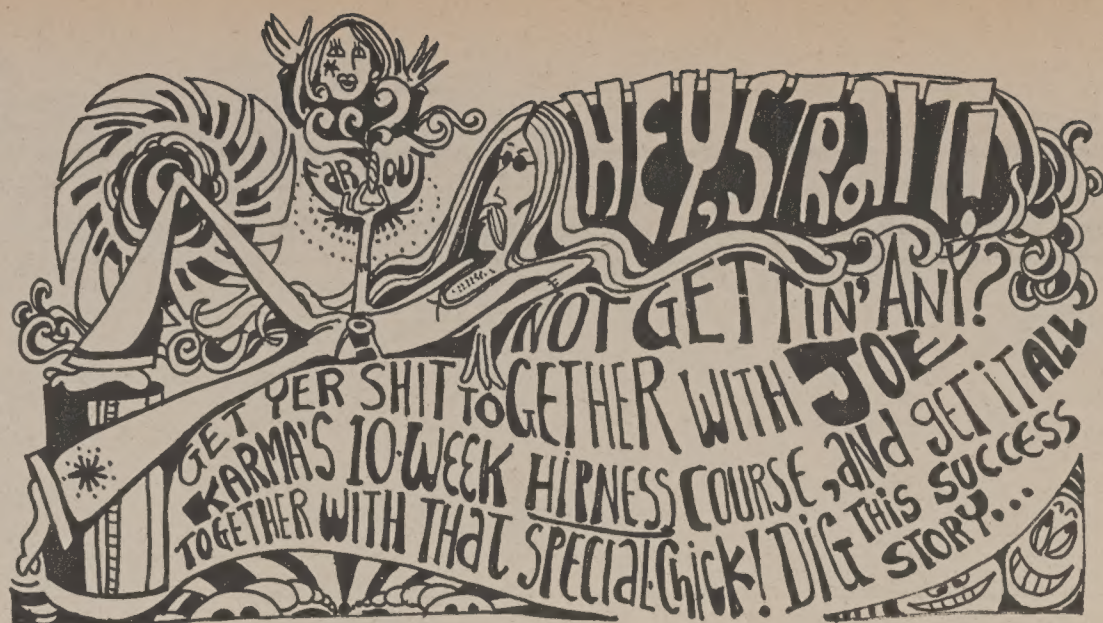 HEY, STRAIT!
NOT GETTIN' ANY?
GET YER SHIT TOGETHER WITH JOE
KARMA'S 10-WEEK HIPNESS COURSE, aND gET iT ALL
TOGETHER WITH THaT SPECIaL ChiCK! DiG THiS SUCCESS
STORY...